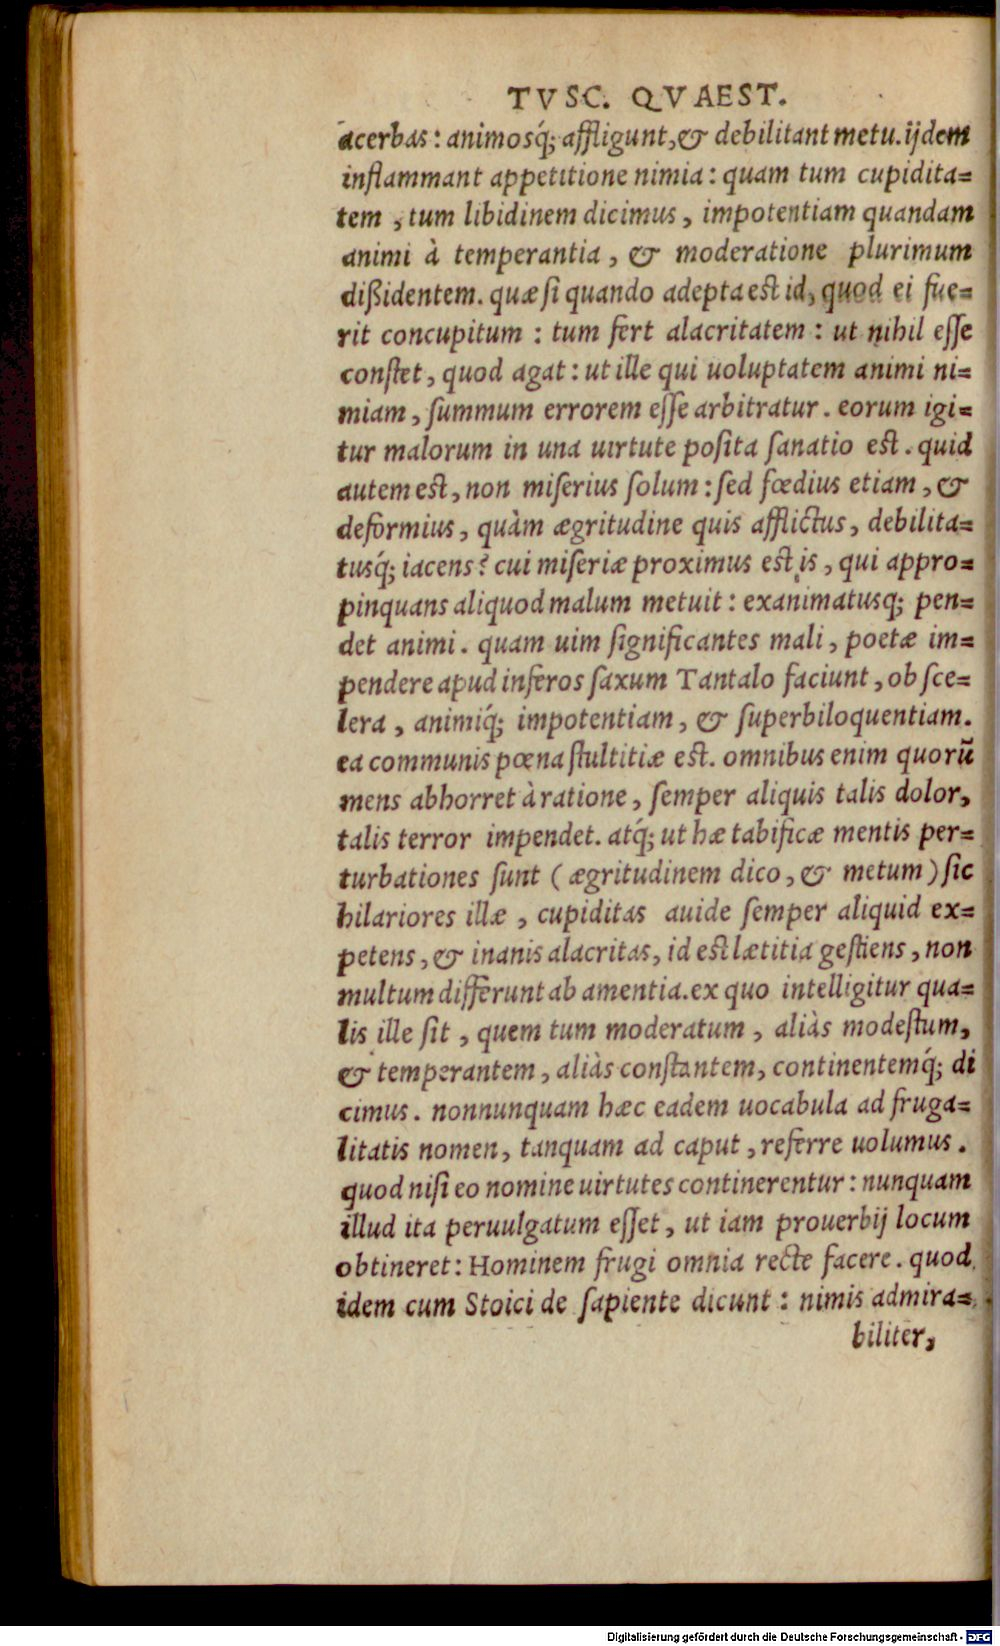 TVSC. QVAEST.
acerbas: animosq́; affligunt, & debilitant metu. ijdem
inflammant appetitione nimia: quam tum cupidita=
tem, tum libidinem dicimus, impotentiam quandam
animi à temperantia, & moderatione plurimum
dißidentem. quæ si quando adepta est id, quod ei fue=
rit concupitum: tum fert alacritatem: ut nihil esse
constet, quod agat: ut ille qui uoluptatem animi ni=
miam, summum errorem esse arbitratur. eorum igi=
tur malorum in una uirtute posita sanatio est. quid
autem est, non miserius solum: sed fœdius etiam, &
deformius, quàm ægritudine quis afflictus, debilita=
tusq́; iacens? cui miseriæ proximus est is, qui appro=
pinquans aliquod malum metuit: exanimatusq; pen=
det animi. quam uim significantes mali, poetæ im=
pendere apud inferos saxum Tantalo faciunt, ob sce=
lera, animiq́; impotentiam, & superbiloquentiam.
ea communis pœna stultitiæ est. omnibus enim quorū
mens abhorret à ratione, semper aliquis talis dolor,
talis terror impendet. atq́; ut hæ tabificæ mentis per=
turbationes sunt (ægritudinem dico, & metum) sic
hilariores illæ, cupiditas auide semper aliquid ex=
petens, & inanis alacritas, id est lætitia gestiens, non
multum differunt ab amentia. ex quo intelligitur qua=
lis ille sit, quem tum moderatum, aliàs modestum,
& temperantem, aliàs constantem, continentemq́; di
cimus. nonnunquam hæc eadem uocabula ad fruga=
litatis nomen, tanquam ad caput, referre uolumus.
quod nisi eo nomine uirtutes continerentur: nunquam
illud ita peruulgatum esset, ut iam prouerbij locum
obtineret: Hominem frugi omnia recte facere. quod
idem cum Stoici de sapiente dicunt: nimis admira=
biliter,
Digitalisierung gefördert durch die Deutsche Forschungsgemeinschaft - DFG